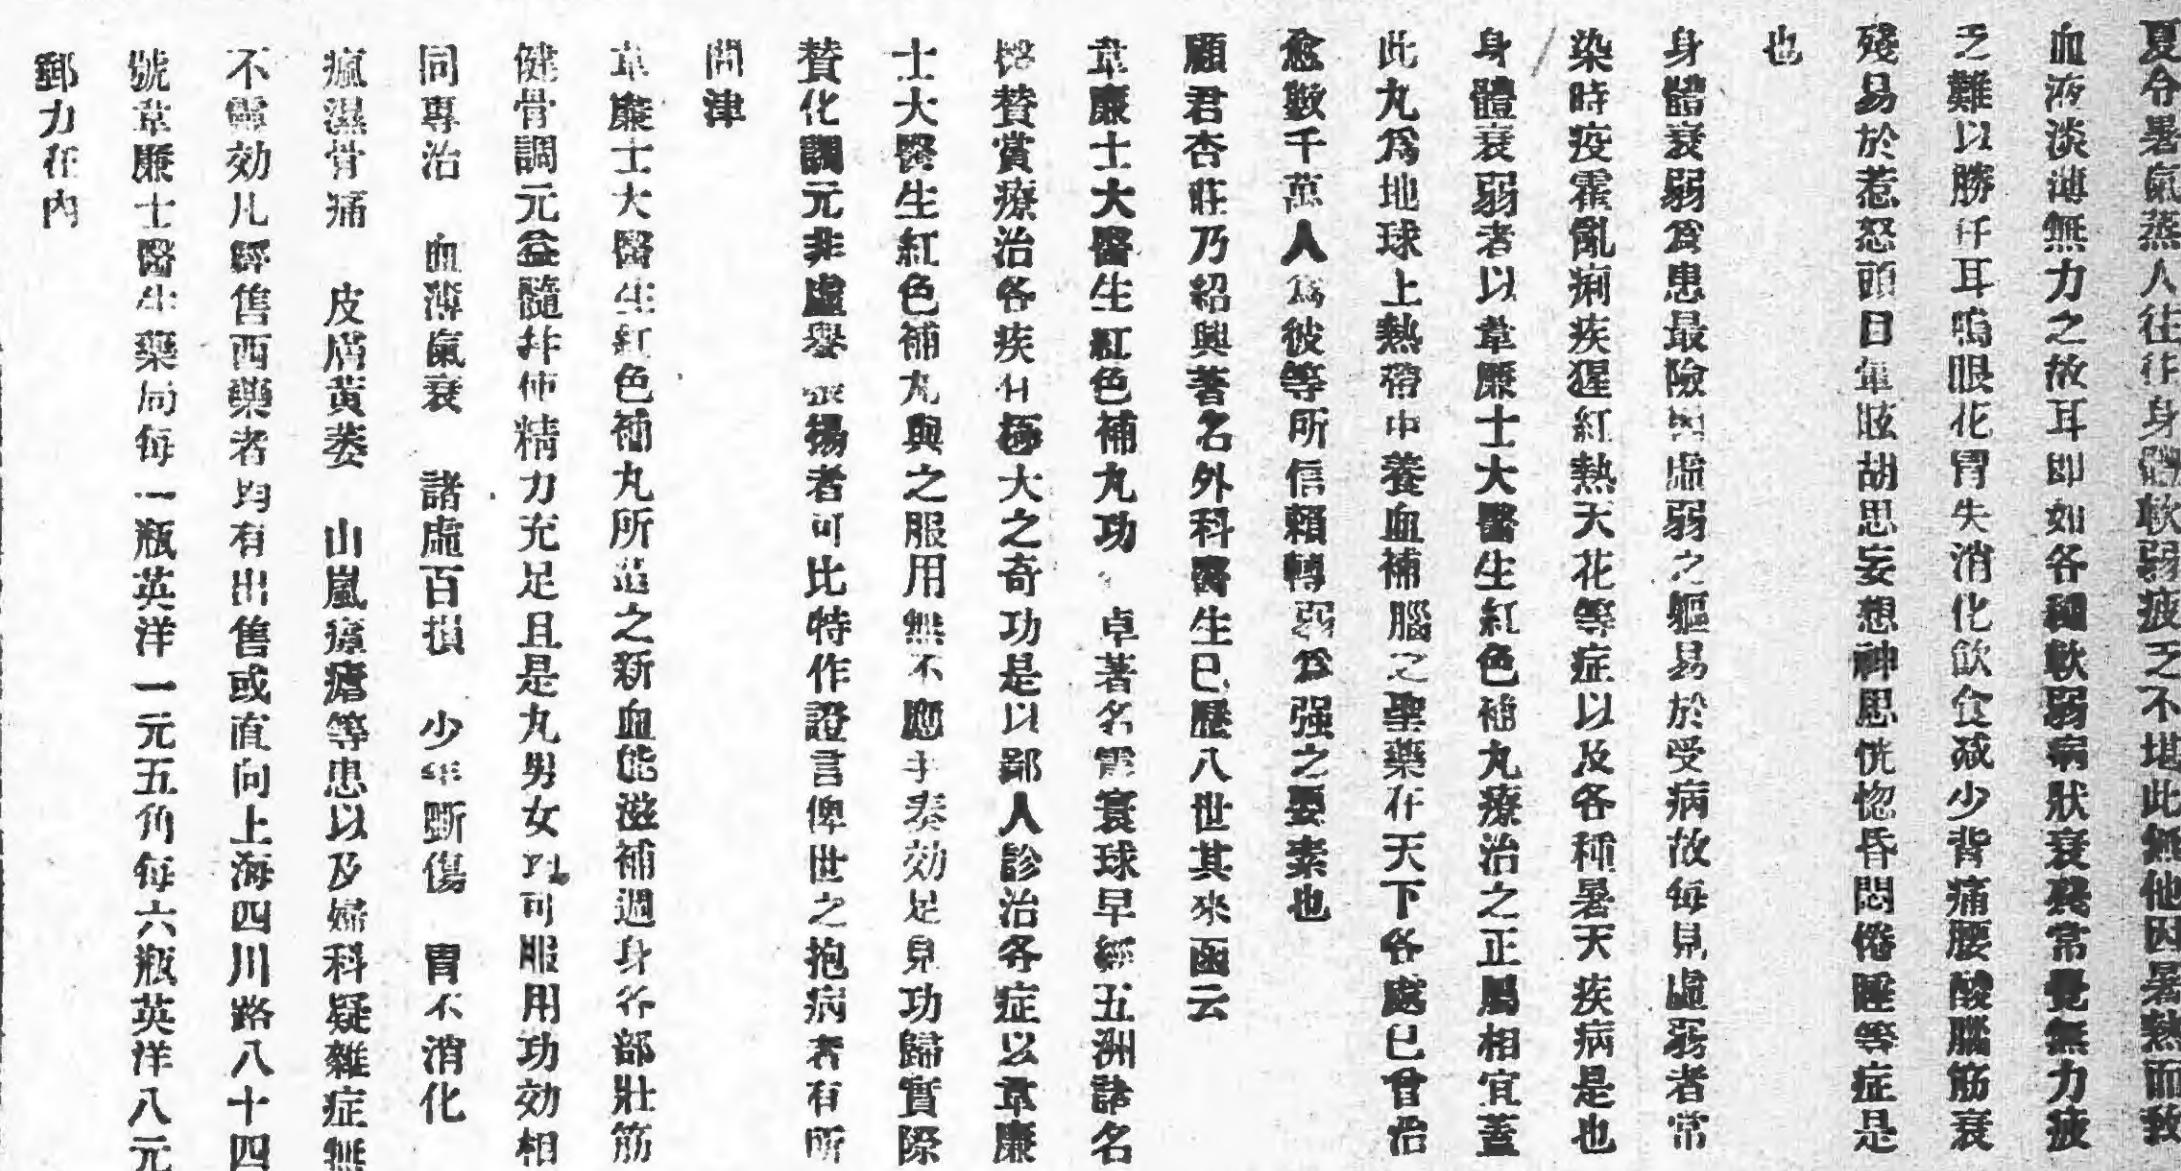 夏令暑氣蒸人往往身體軟弱疲乏不堪此無他因暑熱而致
血液淡薄無力之故耳即如各種軟弱病狀衰弱常覺無力疲
乏難以勝任耳鳴眼花胃失消化飲食减少背痛腰酸腦筋衰
殘易於惹怒頭目暈眩胡思妄想神思恍惚昏悶倦睡等症是
也
身體衰弱爲患最險因虛弱之軀易於受病故每見虛弱者常
染時疫霍亂痢疾猩紅熱天花等症以及各種暑天疾病是也
身體衰弱者以韋廉士大醫生紅色補丸療治之正屬相宜蓋
此丸爲地球上熱帶中養血補腦之聖藥在天下各處已曾治
愈數千萬人爲彼等所信賴轉弱爲强之要素也
顧君杏莊乃紹興著名外科醫生已歷八世其來函云
韋廉士大醫生紅色補丸功 卓著名震寰球早經五洲諸名
醫贊賞療治各疾有極大之奇功是以鄙人診治各症以韋廉
士大醫生紅色補丸與之服用無不應手奏効足見功歸實際
贊化調元非虛譽 揚者可比特作證言俾世之抱病者有所
問津
韋廉士大醫生紅色補丸所造之新血能滋補週身各部壯筋
健骨調元益髓并使精力充足且是丸男女 可服用功効相
同專治 血薄氣衰 諸虛百損 少年斲傷 胃不消化
瘋濕骨痛 皮膚黃萎 山嵐瘴瘧等患以及婦科疑難症無
不靈効凡經售西藥者均有出售或直向上海四川路八十四
號韋廉士醫生藥局每一瓶英洋一元五角每六瓶英洋八元
郵力在內